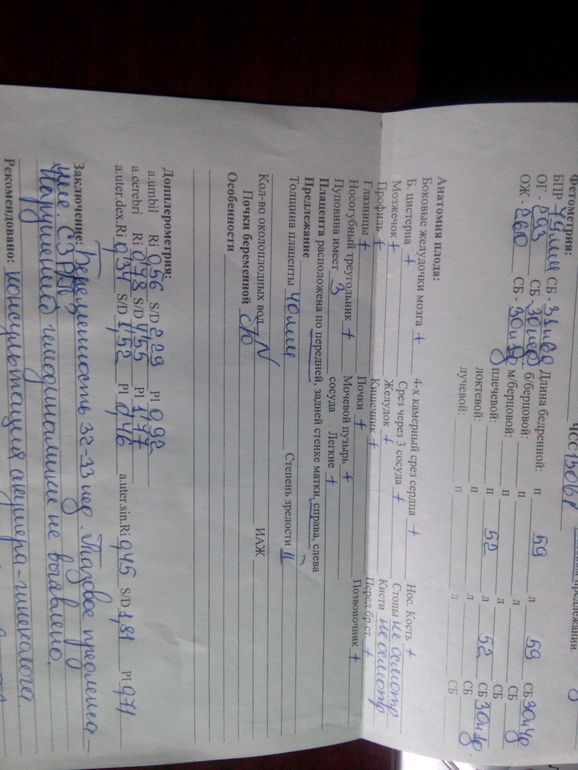 ЧСС 150
Фетометрия:
БПР 79 мм СБ - Длина бедренной: п 59 л 59 СБ
ОГ - 293 СБ - б/берцовой: п л СБ
ОЖ - 260 СБ - м/берцовой: п л СБ
плечевой: п 52 л 52 СБ
локтевой: п л СБ
лучевой: п л СБ
Анатомия плода:
Боковые желудочки мозга + 4-х камерный срез сердца + Нос. Кость +
Б. цистерна + Срез через 3 сосуда + Стопы не осмотр
Мозжечок + Желудок + Кисти не осмотр
Профиль + Кишечник + Перед.бр.ст. +
Глазницы + Почки + Позвоночник +
Носогубный треугольник + Мочевой пузырь +
Пуповина имеет 3 сосуда Легкие +
Плацента расположена по передней, задней стенке матки, справа, слева
Предлежание
Толщина плаценты 40 мм Степень зрелости II
Кол-во околоплодных вод N ИАЖ
Почки беременной
Особенности
Допплерометрия:
a.umbil Ri 0,56 S/D 2,29 PI 0,92
a.cerebri Ri 0,78 S/D PI
a.uter.dex.Ri 0,34 S/D 1,52 PI 0,46 a.uter.sin.Ri 0,45 S/D 1,81 PI 0,71
Заключение: Беременность 32-33 нед. Тазовое предлежа-
ние. СЗРП
Нарушений гемодинамики не выявлено.
Рекомендовано: консультация акушера-гинеколога